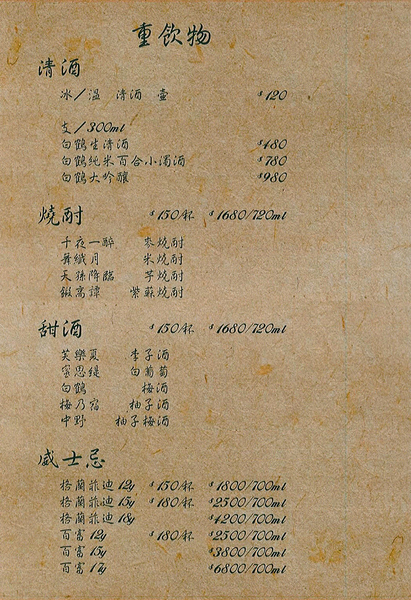 重飲物
清酒
冰／溫 清酒 壺 $120
支／300ml
白鶴生清酒 $480
白鶴純米百合小濁酒 $780
白鶴大吟釀 $980
燒酎 $150/杯 $1680/720ml
千夜一醉 麥燒酎
舞纖月 米燒酎
天孫降臨 芋燒酎
鍛高譚 紫蘇燒酎
甜酒 $150/杯 $1680/720ml
芙樂夏 李子酒
蜜思緹 白葡萄
白鶴 梅酒
梅乃宿 柚子酒
中野 柚子梅酒
威士忌
格蘭菲迪 12y $150/杯 $1800/700ml
格蘭菲迪 15y $180/杯 $2500/700ml
格蘭菲迪 18y $4200/700ml
百富 12y $180/杯 $2500/700ml
百富 15y $3800/700ml
百富 17y $6800/700ml